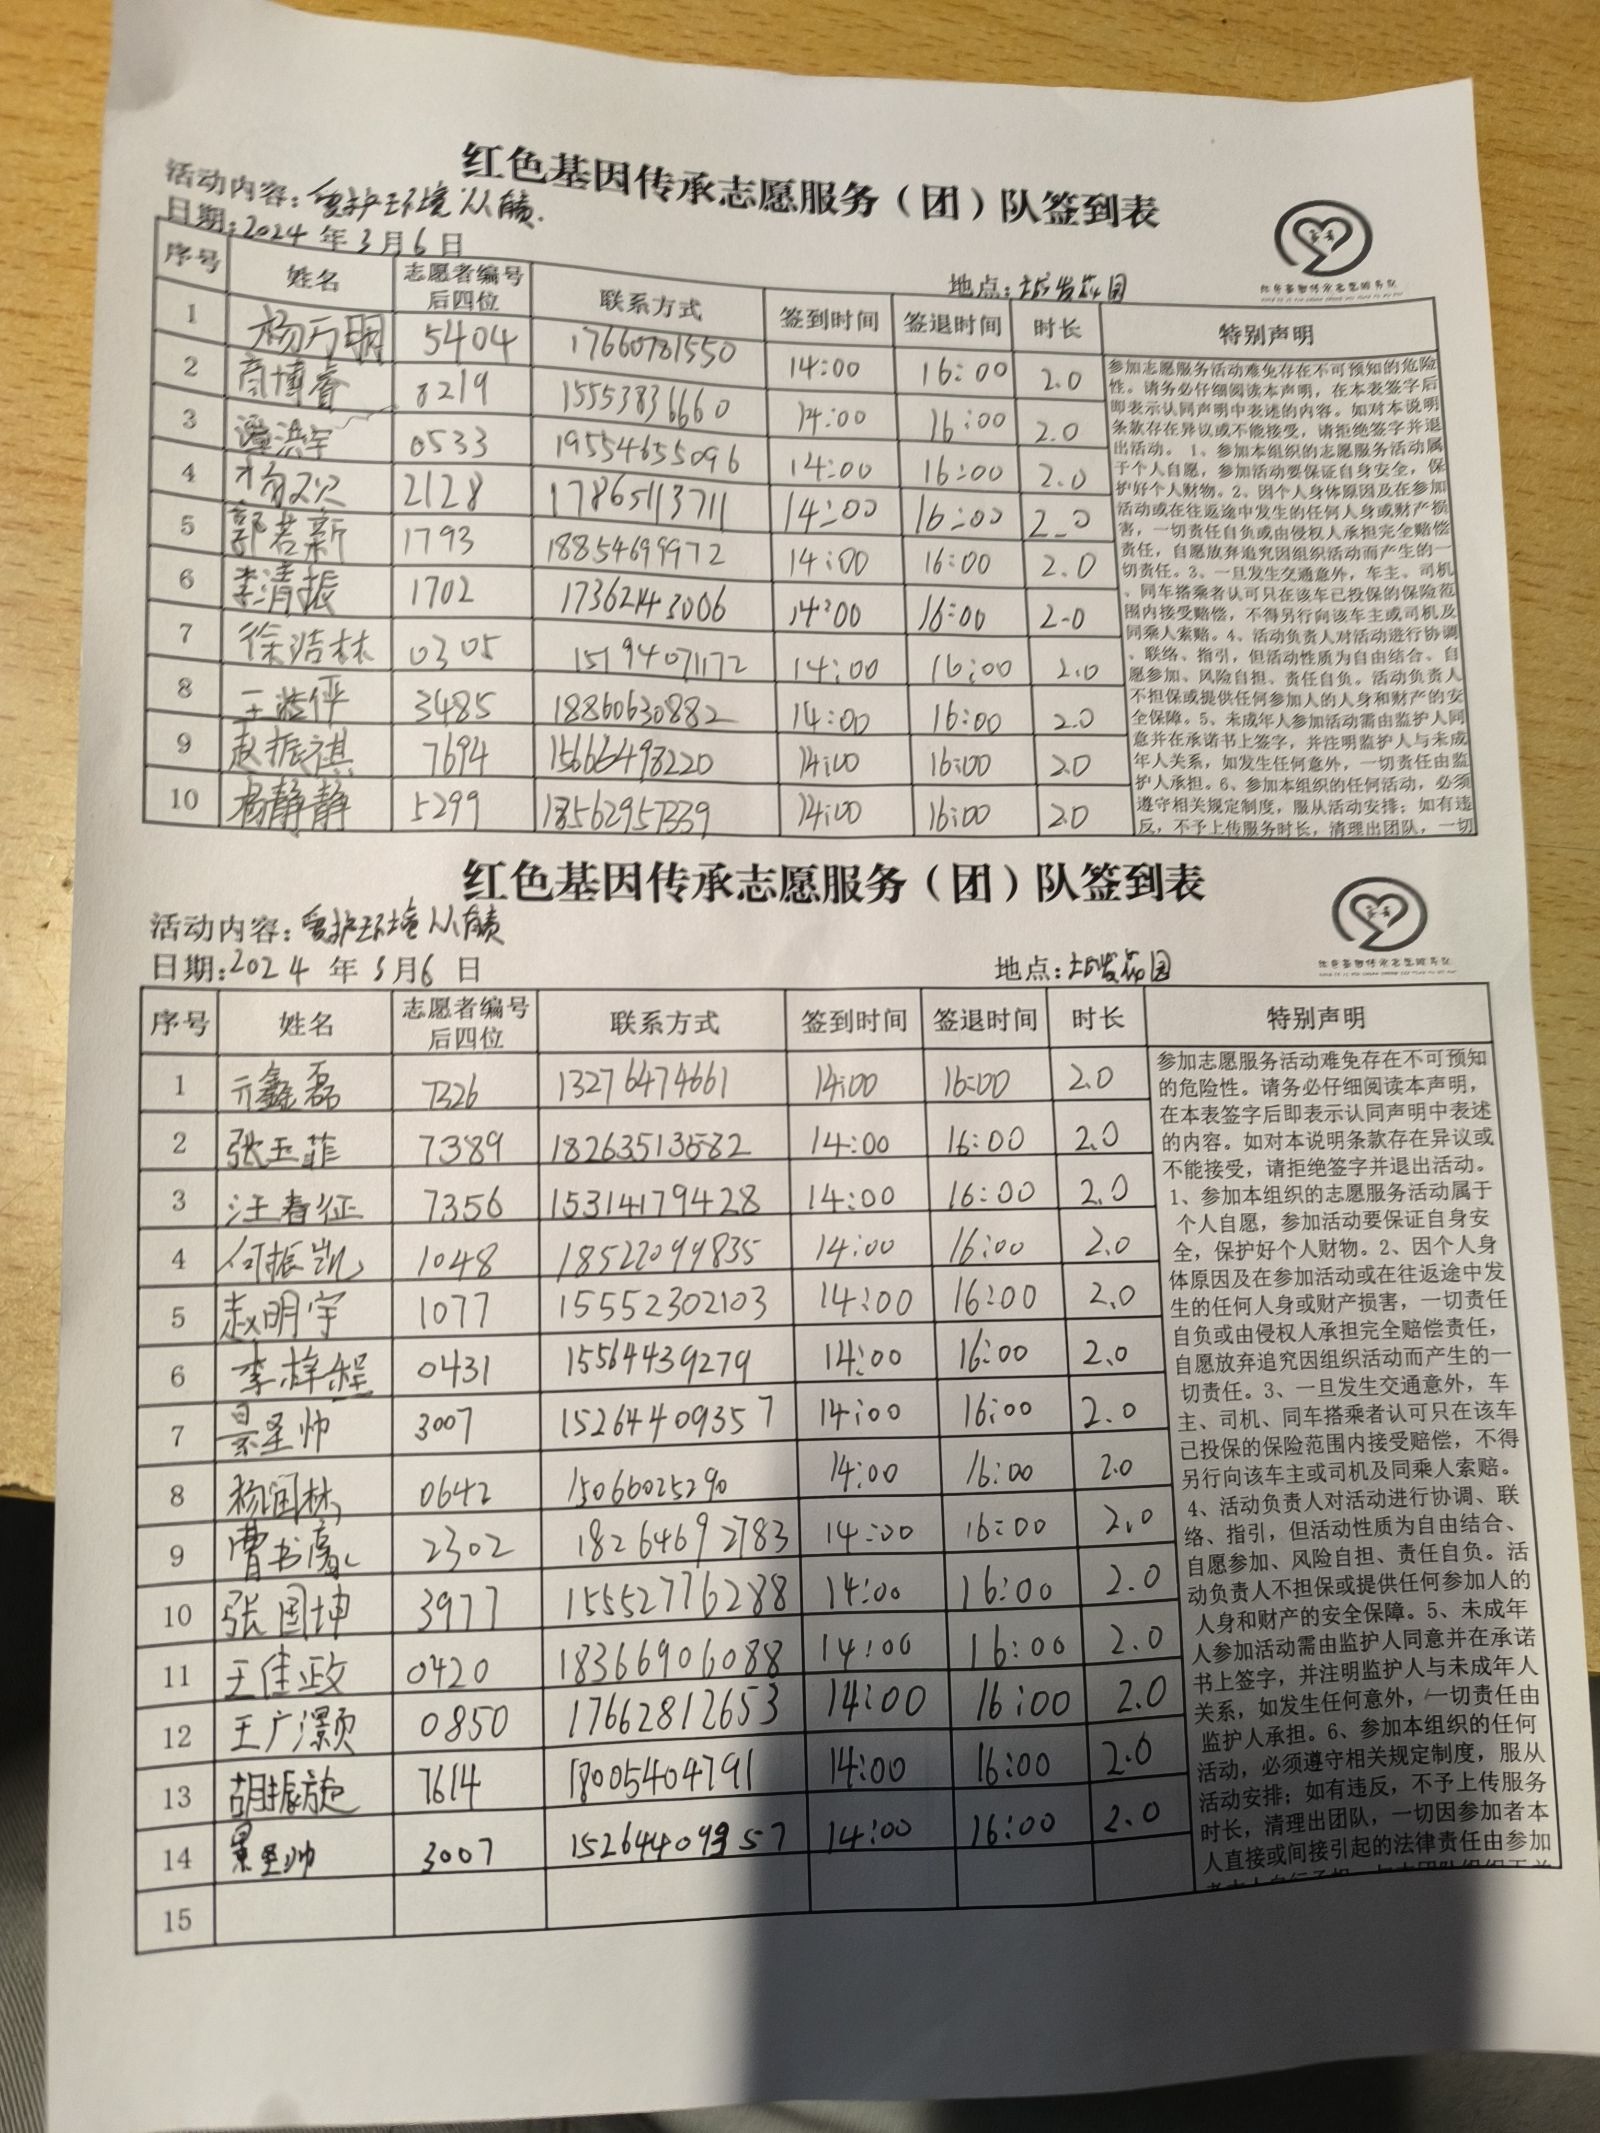 红色基因传承志愿服务（团）队签到表
活动内容：爱护环境 从
日期：2024 年 3 月 6 日
地点：
序号 姓名 志愿者编号后四位 联系方式 签到时间 签退时间 时长 特别声明
1 杨万明 5404 17660781550 14:00 16:00 2.0
2 商博睿 8219 15553836660 14:00 16:00 2.0
3 洪宇 0533 19554655096 14:00 16:00 2.0
4 杨 2128 17865113711 14:00 16:00 2.0
5 郭若新 1793 18854699972 14:00 16:00 2.0
6 李清振 1702 17362143006 14:00 16:00 2.0
7 徐洁林 0305 15194071172 14:00 16:00 2.0
8 王 3485 18860630882 14:00 16:00 2.0
9 赵振祺 7694 15666498220 14:00 16:00 2.0
10 杨静静 5299 14:00 16:00 2.0
参加志愿服务活动难免存在不可预知的危险
性。请务必仔细阅读本声明，在本表签字后
即表示认同声明中表述的内容。如对本说明
条款存在异议或不能接受，请拒绝签字并退
出活动。1、参加本组织的志愿服务活动属
于个人自愿，参加活动要保证自身安全，保
护好个人财物。2、因个人身体原因及在参加
活动或在往返途中发生的任何人身或财产损
害，一切责任自负或由侵权人承担完全赔偿
责任，自愿放弃追究因组织活动而产生的一
切责任。3、一旦发生交通意外，车主、司机
、同车搭乘者认可只在该车已投保的保险范
围内接受赔偿，不得另行向该车主或司机及
同乘人索赔。4、活动负责人对活动进行协调
、联络、指引，但活动性质为自由结合、自
愿参加、风险自担、责任自负。活动负责人
不担保或提供任何参加人的人身和财产的安
全保障。5、未成年人参加活动需由监护人同
意并在承诺书上签字，并注明监护人与未成
年人关系，如发生任何意外，一切责任由监
护人承担。6、参加本组织的任何活动，必须
遵守相关规定制度，服从活动安排；如有违
反，不予上传服务时长，清理出团队，一切
红色基因传承志愿服务（团）队签到表
活动内容：爱护环境 从
日期：2024 年 3 月 6 日
地点：
序号 姓名 志愿者编号后四位 联系方式 签到时间 签退时间 时长 特别声明
1 亓鑫磊 7326 13276474661 14:00 16:00 2.0
2 张玉菲 7389 18263513582 14:00 16:00 2.0
3 汪春征 7356 15314179428 14:00 16:00 2.0
4 何振凯 1048 18522099835 14:00 16:00 2.0
5 赵明宇 1077 15552302103 14:00 16:00 2.0
6 李梓程 0431 15564439279 14:00 16:00 2.0
7 景圣帅 3007 15264409357 14:00 16:00 2.0
8 杨闰林 0642 15066025290 14:00 16:00 2.0
9 曹书 2302 18264692783 14:00 16:00 2.0
10 张国坤 3977 15552776288 14:00 16:00 2.0
11 王佳政 0420 18366906088 14:00 16:00 2.0
12 王广灏 0850 17662812653 14:00 16:00 2.0
13 胡振旋 7614 18005404791 14:00 16:00 2.0
14 景圣帅 3007 15264409357 14:00 16:00 2.0
15
参加志愿服务活动难免存在不可预知
的危险性。请务必仔细阅读本声明，
在本表签字后即表示认同声明中表述
的内容。如对本说明条款存在异议或
不能接受，请拒绝签字并退出活动。
1、参加本组织的志愿服务活动属于
个人自愿，参加活动要保证自身安
全，保护好个人财物。2、因个人身
体原因及在参加活动或在往返途中发
生的任何人身或财产损害，一切责任
自负或由侵权人承担完全赔偿责任，
自愿放弃追究因组织活动而产生的一
切责任。3、一旦发生交通意外，车
主、司机、同车搭乘者认可只在该车
已投保的保险范围内接受赔偿，不得
另行向该车主或司机及同乘人索赔。
4、活动负责人对活动进行协调、联
络、指引，但活动性质为自由结合、
自愿参加、风险自担、责任自负。活
动负责人不担保或提供任何参加人的
人身和财产的安全保障。5、未成年
人参加活动需由监护人同意并在承诺
书上签字，并注明监护人与未成年人
关系，如发生任何意外，一切责任由
监护人承担。6、参加本组织的任何
活动，必须遵守相关规定制度，服从
活动安排；如有违反，不予上传服务
时长，清理出团队，一切因参加者本
人直接或间接引起的法律责任由参加